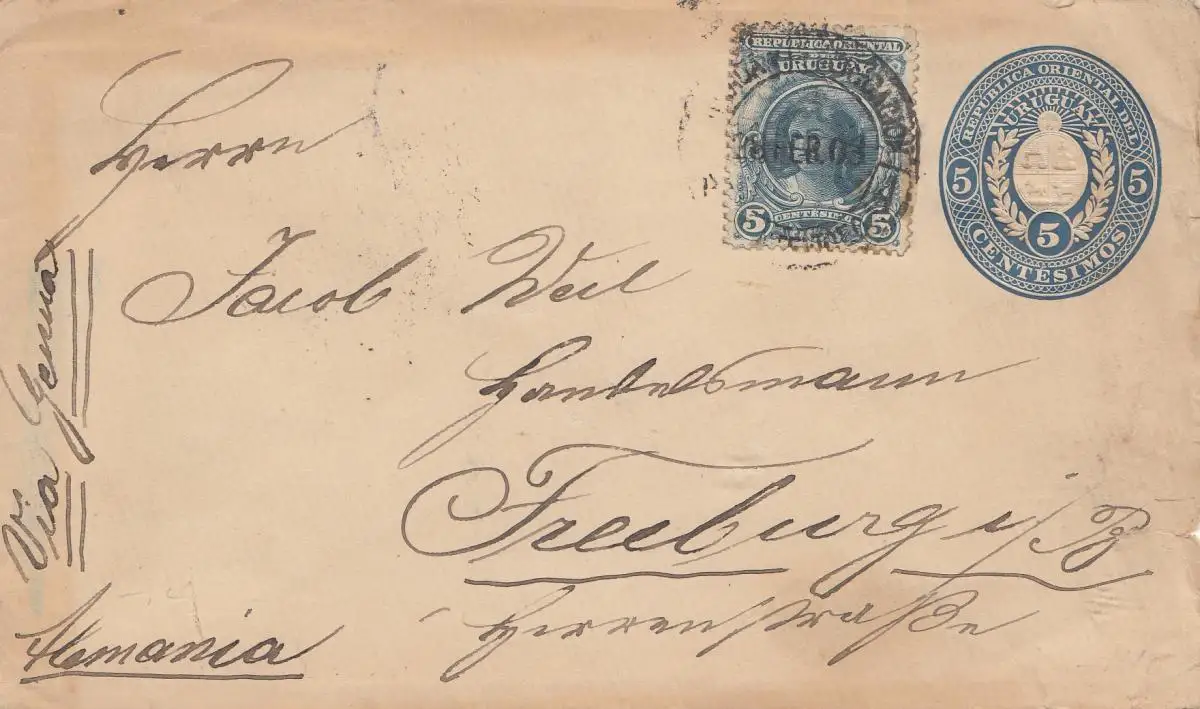 REPUBLICA ORIENTAL
URUGUAY
FEB. 03
5 CENTÉSIMOS 5
REPUBLICA ORIENTAL DEL
URUGUAY
5 5 5
CENTESIMOS
Herrn
Jacob Weil
Handelsmann
Freiburg i/B
Herrenstraße
Via Genua
Alemania